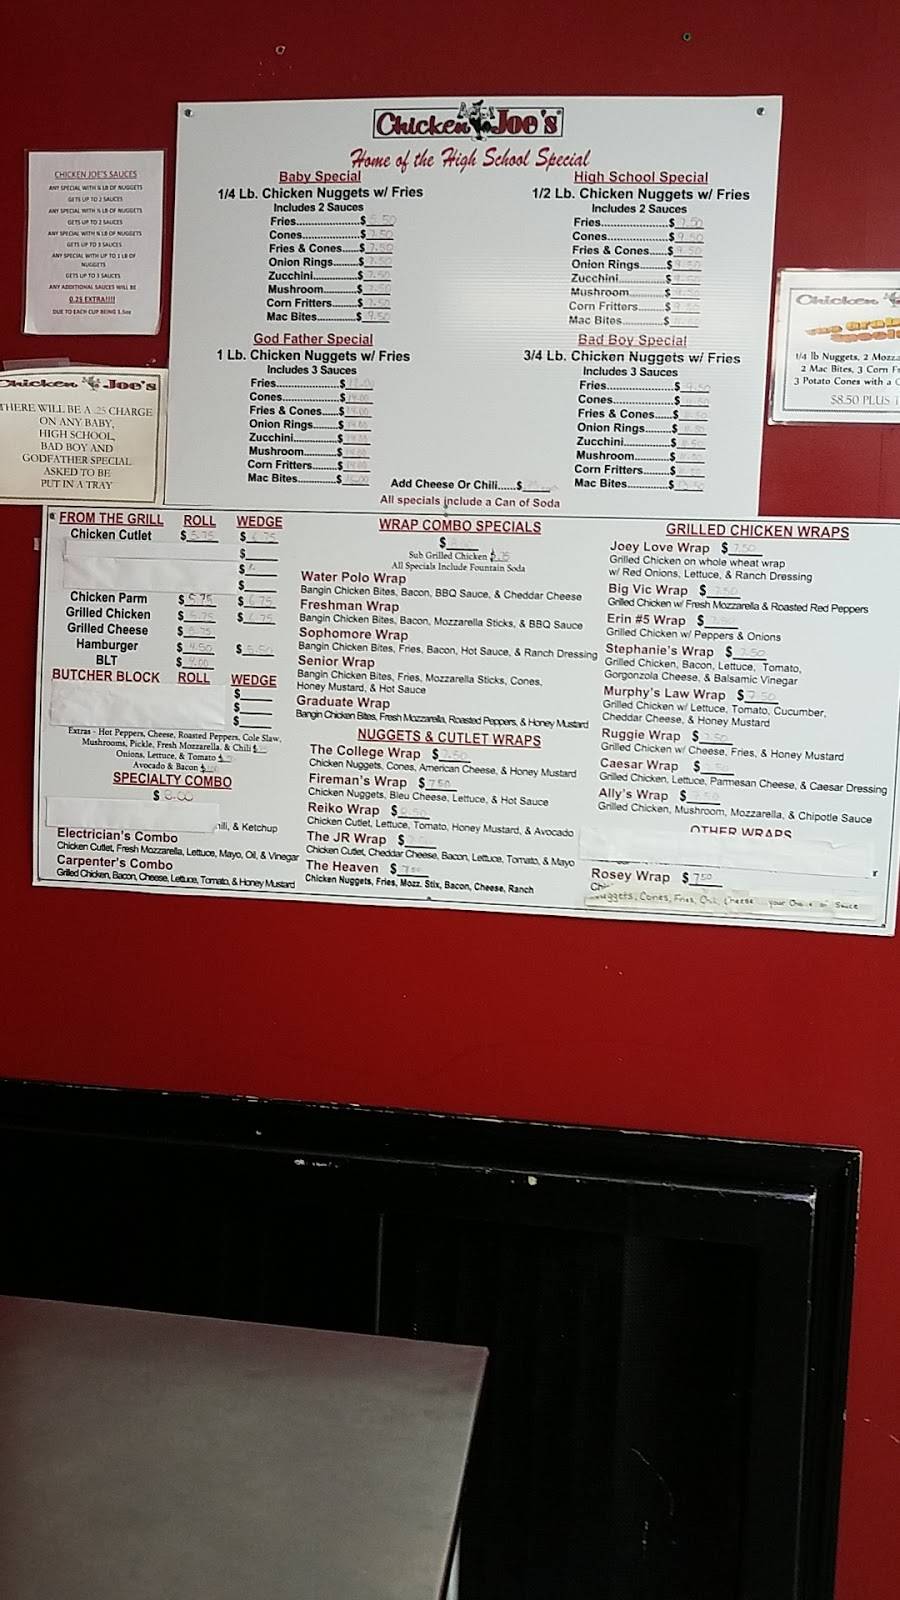 CHICKEN JOE'S SAUCES
ANY SPECIAL WITH ¼ LB OF NUGGETS
GETS UP TO 2 SAUCES
ANY SPECIAL WITH ½ LB OF NUGGETS
GETS UP TO 2 SAUCES
ANY SPECIAL WITH ¾ LB OF NUGGETS
GETS UP TO 3 SAUCES
ANY SPECIAL WITH UP TO 1 LB OF
NUGGETS
GETS UP TO 3 SAUCES
ANY ADDITIONAL SAUCES WILL BE
0.25 EXTRA!!!!
DUE TO EACH CUP BEING 1.5oz
Chicken Joe's
THERE WILL BE A .25 CHARGE
ON ANY BABY,
HIGH SCHOOL,
BAD BOY AND
GODFATHER SPECIAL
ASKED TO BE
PUT IN A TRAY
Chicken Joe's
Home of the High School Special
Baby Special
1/4 Lb. Chicken Nuggets w/ Fries
Includes 2 Sauces
Fries....................$ 5.50
Cones..................$ 7.50
Fries & Cones.....$ 7.50
Onion Rings........$ 7.50
Zucchini...............$ 7.50
Mushroom...........$ 7.50
Corn Fritters........$ 7.50
Mac Bites............$ 9.50
High School Special
1/2 Lb. Chicken Nuggets w/ Fries
Includes 2 Sauces
Fries.....................$ 7.50
Cones...................$ 9.50
Fries & Cones......$ 9.50
Onion Rings.........$ 9.50
Zucchini................$
Mushroom............$
Corn Fritters.........$
Mac Bites.............$
God Father Special
1 Lb. Chicken Nuggets w/ Fries
Includes 3 Sauces
Fries.....................$
Cones...................$ 14.00
Fries & Cones......$ 14.00
Onion Rings.........$ 14.00
Zucchini................$ 14.00
Mushroom............$ 14.00
Corn Fritters.........$ 14.00
Mac Bites.............$
Bad Boy Special
3/4 Lb. Chicken Nuggets w/ Fries
Includes 3 Sauces
Fries.....................$ 9.50
Cones...................$
Fries & Cones......$
Onion Rings.........$
Zucchini................$
Mushroom............$
Corn Fritters.........$
Mac Bites.............$
Add Cheese Or Chili.....$
All specials include a Can of Soda
Chicken
1/4 lb Nuggets, 2 Mozza
2 Mac Bites, 3 Corn F
3 Potato Cones with a
$8.50 PLUS
FROM THE GRILL ROLL WEDGE
Chicken Cutlet $ 5.75 $ 6.75
$
$
$
Chicken Parm $ 5.75 $ 6.75
Grilled Chicken $ 5.75 $ 6.75
Grilled Cheese $ 3.75
Hamburger $ 4.50 $ 5.50
BLT $ 4.00
BUTCHER BLOCK ROLL WEDGE
$
$
$
Extras - Hot Peppers, Cheese, Roasted Peppers, Cole Slaw,
Mushrooms, Pickle, Fresh Mozzarella, & Chili $
Onions, Lettuce, & Tomato $
Avocado & Bacon $
SPECIALTY COMBO
$ 8.00
hili, & Ketchup
Electrician's Combo
Chicken Cutlet, Fresh Mozzarella, Lettuce, Mayo, Oil, & Vinegar
Carpenter's Combo
Grilled Chicken, Bacon, Cheese, Lettuce, Tomato, & Honey Mustard
WRAP COMBO SPECIALS
$
Sub Grilled Chicken $.75
All Specials Include Fountain Soda
Water Polo Wrap
Bangin Chicken Bites, Bacon, BBQ Sauce, & Cheddar Cheese
Freshman Wrap
Bangin Chicken Bites, Bacon, Mozzarella Sticks, & BBQ Sauce
Sophomore Wrap
Bangin Chicken Bites, Fries, Bacon, Hot Sauce, & Ranch Dressing
Senior Wrap
Bangin Chicken Bites, Fries, Mozzarella Sticks, Cones,
Honey Mustard, & Hot Sauce
Graduate Wrap
Bangin Chicken Bites, Fresh Mozzarella, Roasted Peppers, & Honey Mustard
NUGGETS & CUTLET WRAPS
The College Wrap $ 7.50
Chicken Nuggets, Cones, American Cheese, & Honey Mustard
Fireman's Wrap $ 7.50
Chicken Nuggets, Bleu Cheese, Lettuce, & Hot Sauce
Reiko Wrap $
Chicken Cutlet, Lettuce, Tomato, Honey Mustard, & Avocado
The JR Wrap $
Chicken Cutlet, Cheddar Cheese, Bacon, Lettuce, Tomato, & Mayo
The Heaven $ 7.50
Chicken Nuggets, Fries, Mozz. Stix, Bacon, Cheese, Ranch
GRILLED CHICKEN WRAPS
Joey Love Wrap $ 7.50
Grilled Chicken on whole wheat wrap
w/ Red Onions, Lettuce, & Ranch Dressing
Big Vic Wrap $ 7.50
Grilled Chicken w/ Fresh Mozzarella & Roasted Red Peppers
Erin #5 Wrap $
Grilled Chicken w/ Peppers & Onions
Stephanie's Wrap $ 7.50
Grilled Chicken, Bacon, Lettuce, Tomato,
Gorgonzola Cheese, & Balsamic Vinegar
Murphy's Law Wrap $ 7.50
Grilled Chicken w/ Lettuce, Tomato, Cucumber,
Cheddar Cheese, & Honey Mustard
Ruggie Wrap $ 7.50
Grilled Chicken w/ Cheese, Fries, & Honey Mustard
Caesar Wrap $
Grilled Chicken, Lettuce, Parmesan Cheese, & Caesar Dressing
Ally's Wrap $
Grilled Chicken, Mushroom, Mozzarella, & Chipotle Sauce
OTHER WRAPS
Rosey Wrap $ 7.50
Chi
Nuggets, Cones, Fries, Cheese your Choice of Sauce